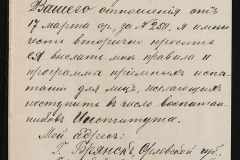 Вашего отношения отъ
17 марта ср. за № 250. Я имѣю
честь вторично просить
ея выслать мнѣ правила и
программа пріёмныхъ испы
таній для лицъ, желающихъ
поступить въ число воспитан
никовъ Института.
Мой адресъ:
Г. Брянскъ, Орловской губ.